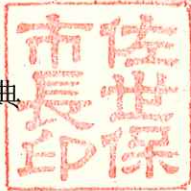 佐世保
市長印
典